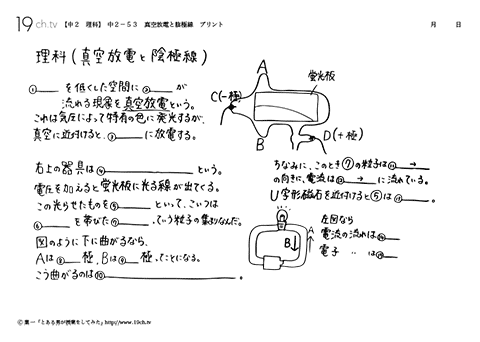 19ch.tv 【中2 理科】 中2-53 真空放電と陰極線 プリント
月 日
理科(真空放電と陰極線)
① を低くした空間に② が
流れる現象を真空放電という。
これは気圧によって特有の色に発光するが、
真空に近付けると、③ に放電する。
A
蛍光板
C(-極)
B
D(+極)
右上の器具は④ という。
電圧を加えると蛍光板に光る線が出てくる。
この光らせたものを⑤ といって、こいつは
⑥ を帯びた⑦ っていう粒子の集まりなんだ。
図のように下に曲がるなら、
Aは⑧ 極、Bは⑨ 極ってことになる。
こう曲がるのは⑩ 。
ちなみに、このとき⑦の粒子は⑪ →
の向きに、電流は⑫ → に流れている。
U字形磁石を近付けると⑤は⑬ 。
左図なら
電流の流れは⑭
電子 〃 は⑮
A
B
ⓒ 葉一「とある男が授業をしてみた」http://www.19ch.tv